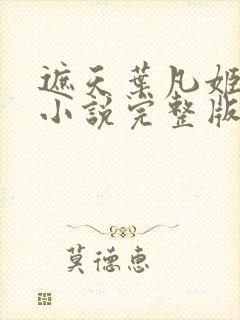 遮天葉凡姬
小說完整版
莫德惠